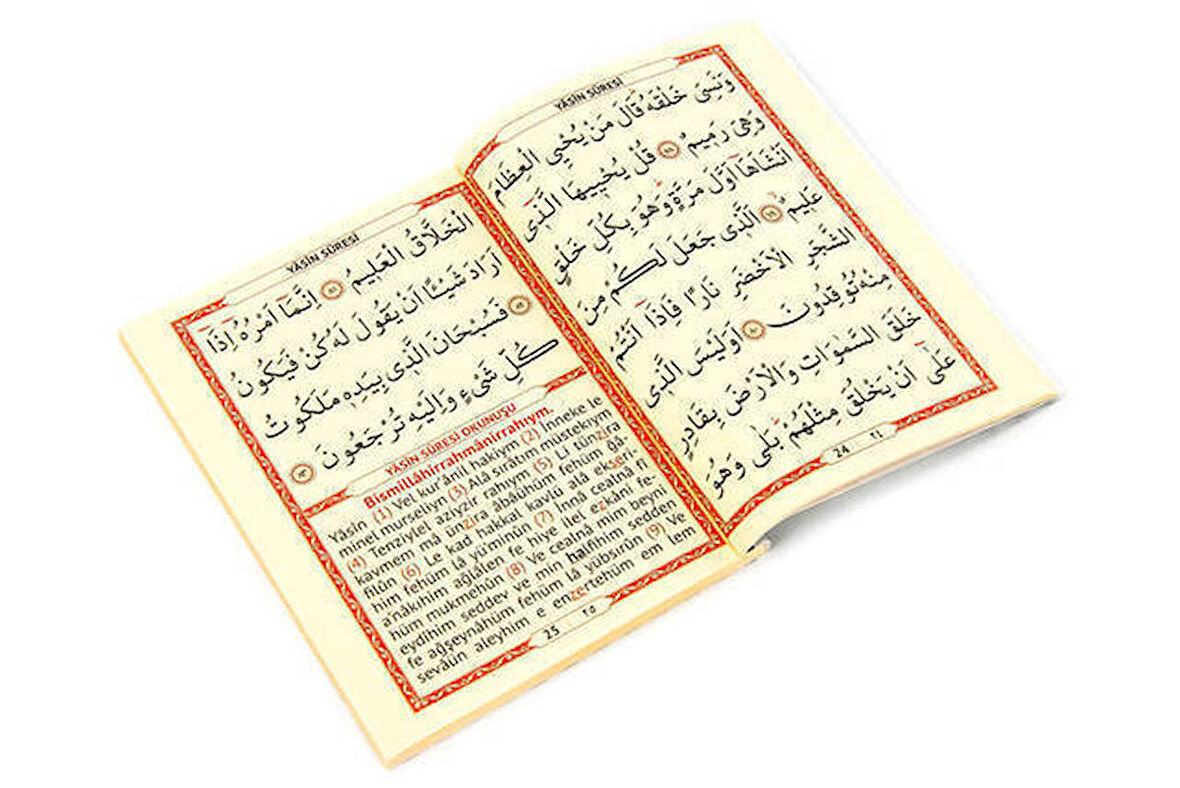 YÂSİN SÛRESİ
وَنَسِىَ خَلْقَهُ قَالَ مَنْ يُحْيِى الْعِظَامَ
وَهِىَ رَمِيمٌ ﴿٧٨﴾ قُلْ يُحْيِيهَا الَّذِى
اَنْشَاَهَٓا اَوَّلَ مَرَّةٍ وَهُوَ بِكُلِّ خَلْقٍ
عَلِيمٌ ﴿٧٩﴾ اَلَّذِى جَعَلَ لَكُمْ مِنَ
الشَّجَرِ الْاَخْضَرِ نَارًا فَاِذَٓا اَنْتُمْ
مِنْهُ تُوقِدُونَ ﴿٨٠﴾ اَوَلَيْسَ الَّذِى
خَلَقَ السَّمٰوَاتِ وَالْاَرْضَ بِقَادِرٍ
عَلٰٓى اَنْ يَخْلُقَ مِثْلَهُمْ بَلٰى وَهُوَ
24 ٢٤
YÂSİN SÛRESİ
الْخَلَّاقُ الْعَلِيمُ ﴿٨١﴾ اِنَّمَٓا اَمْرُهُٓ اِذَٓا
اَرَادَ شَيْـًٔا اَنْ يَقُولَ لَهُ كُنْ فَيَكُونُ
﴿٨٢﴾ فَسُبْحَانَ الَّذِى بِيَدِهِ مَلَكُوتُ
كُلِّ شَىْءٍ وَاِلَيْهِ تُرْجَعُونَ ﴿٨٣﴾
YÂSİN SÛRESİ OKUNUŞU
Bismillâhirrahmânirrahıym.
Yâsîn (1) Vel kur'ânil hakiym (2) İnneke le
minel murseliyn (3) Alâ sırâtım müstekıym
(4) Tenziylel aziyzir rahıym (5) Li tünzira
kavmem mâ ünzira âbâühüm fehüm ğâ-
filûn (6) Le kad hakkal kavlü alâ ekseri-
him fehüm lâ yü'minûn (7) İnnâ cealnâ fî
a'nâkıhim ağlâlen fe hiye ilel ezkâni fe-
hüm mukmehûn (8) Ve cealnâ mim beyni
eydîhim seddev ve min halfihim sedden
fe ağşeynâhüm fehüm lâ yübsırûn (9) Ve
sevâün aleyhim e enzertehüm em lem
25 ٢٥